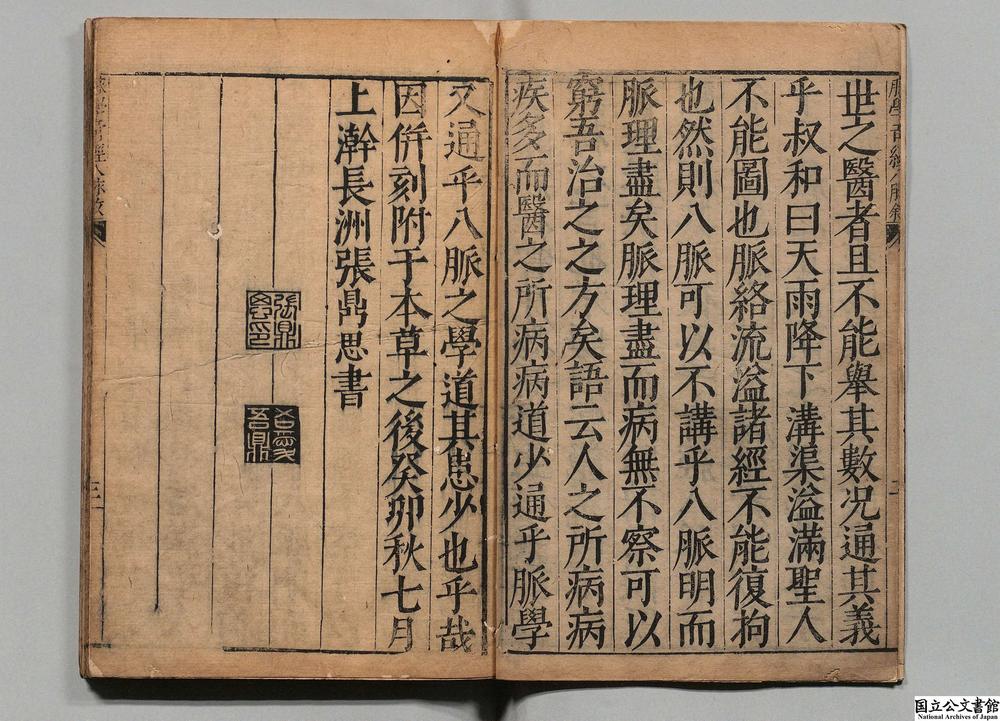 世之醫者且不能舉其數况通其義
乎叔和曰天雨降下溝渠溢滿聖人
不能圖也脈絡流溢諸經不能復拘
也然則八脈可以不講乎八脈明而
脈理盡矣脈理盡而病無不察可以
窮吾治之之方矣語云人之所病病
疾多而醫之所病病道少通乎脈學
又通乎八脈之學道其患少也乎哉
因併刻附于本草之後癸卯秋七月
上澣長洲張鼎思書
張鼎
三
国立公文書館
National Archives of Japan